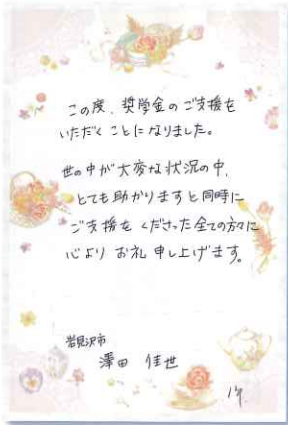 この度、奨学金のご支援を
いただくことになりました。
世の中が大変な状況の中、
とても助かりますと同時に
ご支援をくださった全ての方々に
心よりお礼申し上げます。
岩見沢市
澤田佳世